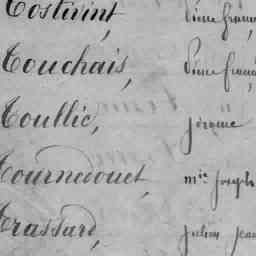 Tostivint, Pierre franç
Touchais, Pierre franç
Toullic, jérôme
Tournedouet, m.ie joseph
Trassard, julien jean